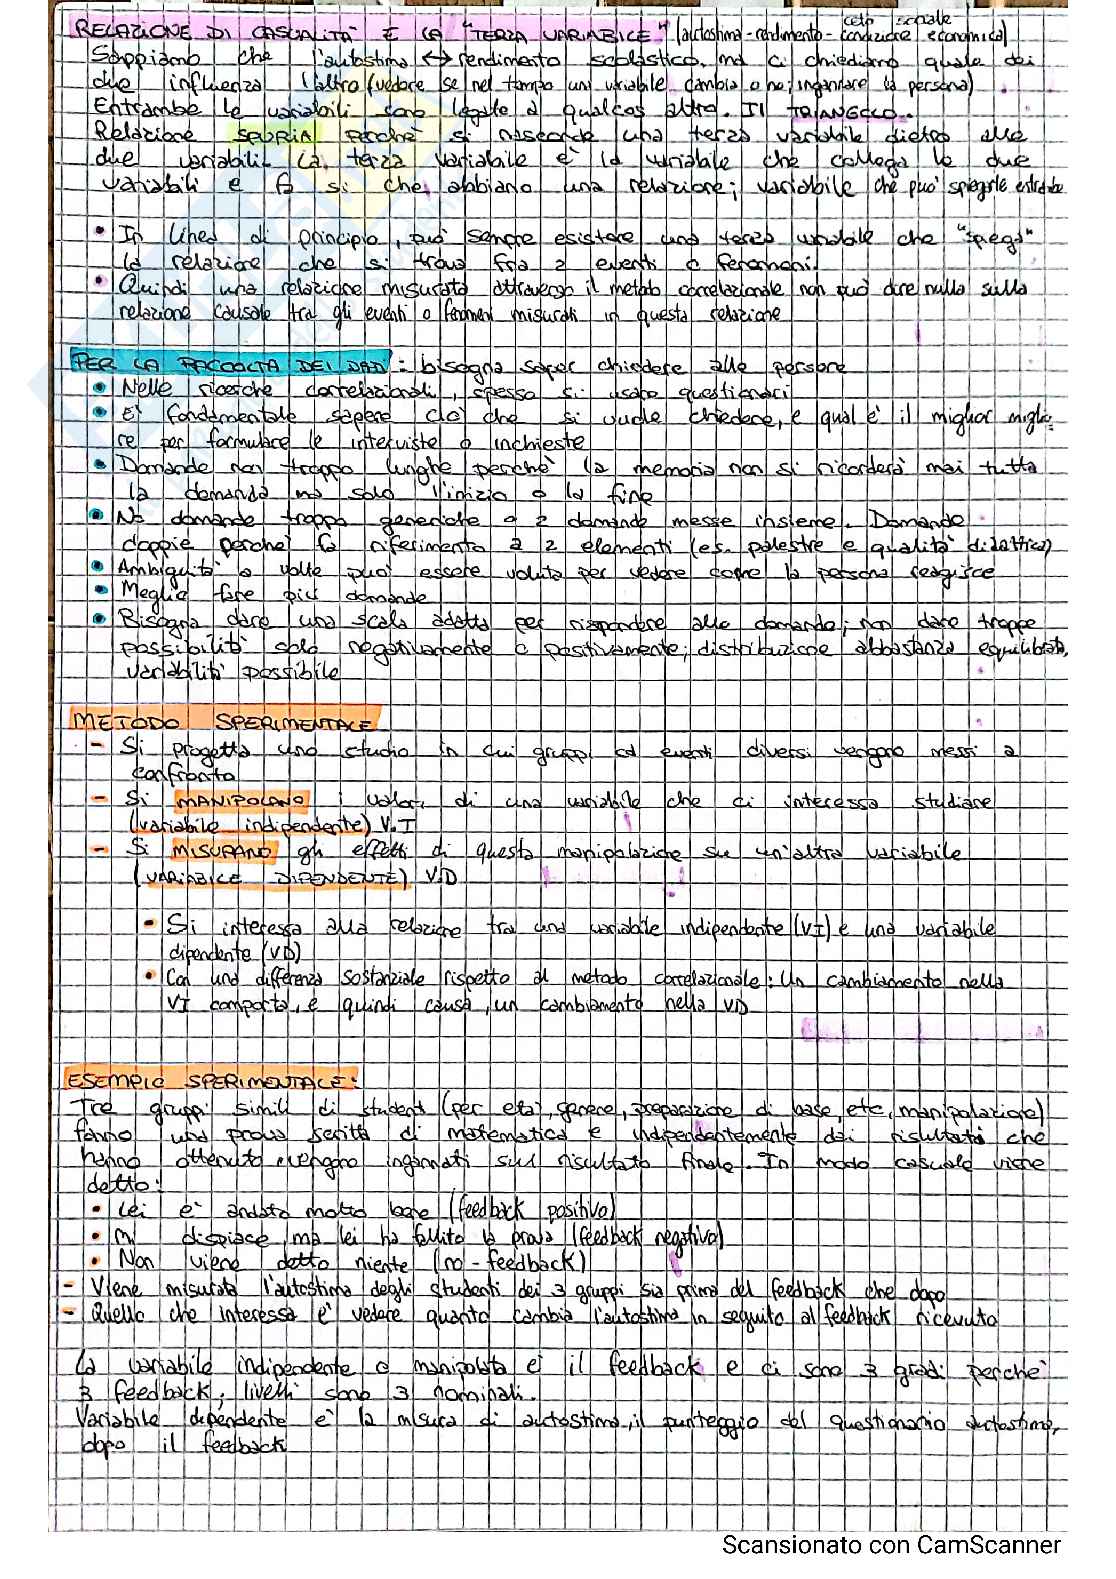 RELAZIONE DI CASUALITÀ E LA "TERZA VARIABILE" (autostima-rendimento- ceto sociale condizione economica)
Sappiamo che l'autostima ↔ rendimento scolastico, ma ci chiediamo quale dei
due influenza l'altro (vedere se nel tempo una variabile cambia o no; ingannare la persona)
Entrambe le variabili sono legate a qualcos altro. Il TRIANGOLO.
Relazione SPURIA perchè si nasconde una terza variabile dietro alle
due variabili. La terza variabile è la variabile che collega le due
variabili e fa si che abbiano una relazione; variabile che può spiegarle entrambe
• In linea di principio, può sempre esistere una terza variabile che "spiega"
la relazione che si trova fra 2 eventi o fenomeni.
• Quindi una relazione misurata attraverso il metodo correlazionale non può dire nulla sulla
relazione causale tra gli eventi o fenomeni misurati in questa relazione
PER LA RACCOLTA DEI DATI: bisogna saper chiedere alle persone
• Nelle ricerche correlazionali, spesso si usano questionari
• E' fondamentale sapere ciò che si vuole chiedere, e qual è il miglior miglio
re per formulare le interviste o inchieste
• Domande non troppo lunghe perchè la memoria non si ricorderà mai tutta
la domanda ma solo l'inizio o la fine
• No domande troppo generiche o 2 domande messe insieme. Domande
doppie perchè fa riferimento a 2 elementi (es. palestre e qualità didattica)
• Ambiguità a volte può essere voluta per vedere come la persona reagisce
• Meglio fare più domande
• Bisogna dare una scala adatta per rispondere alle domande; non dare troppe
possibilità solo negativamente o positivamente; distribuzione abbastanza equilibrata,
variabilità possibile
METODO SPERIMENTALE
- Si progetta uno studio in cui gruppi ed eventi diversi vengono messi a
confronto
- Si MANIPOLANO i valori di una variabile che ci interessa studiare
(variabile indipendente) V.I
- Si MISURANO gli effetti di questa manipolazione su un'altra variabile
(VARIABILE DIPENDENTE) V.D
• Si interessa alla relazione tra una variabile indipendente (VI) e una variabile
dipendente (VD)
• Con una differenza sostanziale rispetto al metodo correlazionale: Un cambiamento nella
VI comporta, e quindi causa, un cambiamento nella VD
ESEMPIO SPERIMENTALE:
Tre gruppi simili di studenti (per età, genere, preparazione di base, etc, manipolazione)
fanno una prova scritta di matematica e indipendentemente dai risultati che
hanno ottenuto vengono ingannati sul risultato finale. In modo casuale viene
detto:
• Lei è andato molto bene (feedback positivo)
• Mi dispiace, ma lei ha fallito la prova (feedback negativo)
• Non viene detto niente (no-feedback)
- Viene misurata l'autostima degli studenti dei 3 gruppi sia prima del feedback che dopo
- Quello che interessa è vedere quanto cambia l'autostima in seguito al feedback ricevuto
La variabile indipendente o manipolata è il feedback e ci sono 3 gradi perchè
3 feedback; livelli sono 3 nominali.
Variabile dipendente è la misura di autostima, il punteggio del questionario autostima,
dopo il feedback
Scansionato con CamScanner